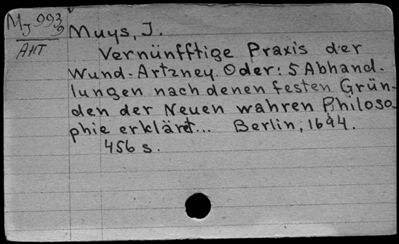 MJ 993
9
AHT
Muys, J.
Vernünfftige Praxis der
Wund-Artzney. Oder: 5 Abhand-
lungen nach denen festen Grün-
den der Neuen wahren Philoso-
phie erkläret... Berlin, 1694.
456 s.